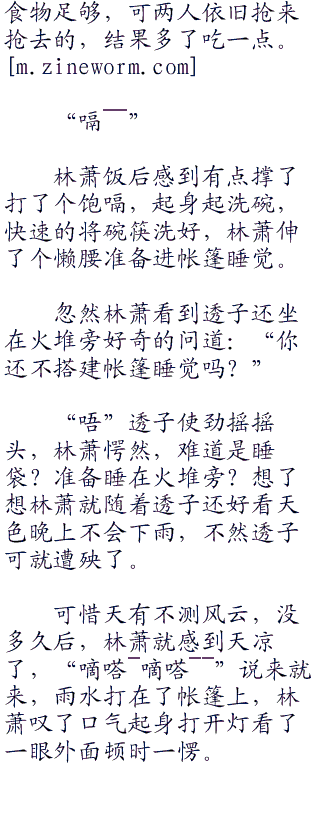 食物足够，可两人依旧抢来
抢去的，结果多了吃一点。
[m.zineworm.com]
“嗝——”
林萧饭后感到有点撑了
打了个饱嗝，起身起洗碗，
快速的将碗筷洗好，林萧伸
了个懒腰准备进帐篷睡觉。
忽然林萧看到透子还坐
在火堆旁好奇的问道：“你
还不搭建帐篷睡觉吗？”
“唔”透子使劲摇摇
头，林萧愕然，难道是睡
袋？准备睡在火堆旁？想了
想林萧就随着透子还好看天
色晚上不会下雨，不然透子
可就遭殃了。
可惜天有不测风云，没
多久后，林萧就感到天凉
了，“嘀嗒—嘀嗒——”说来就
来，雨水打在了帐篷上，林
萧叹了口气起身打开灯看了
一眼外面顿时一愣。